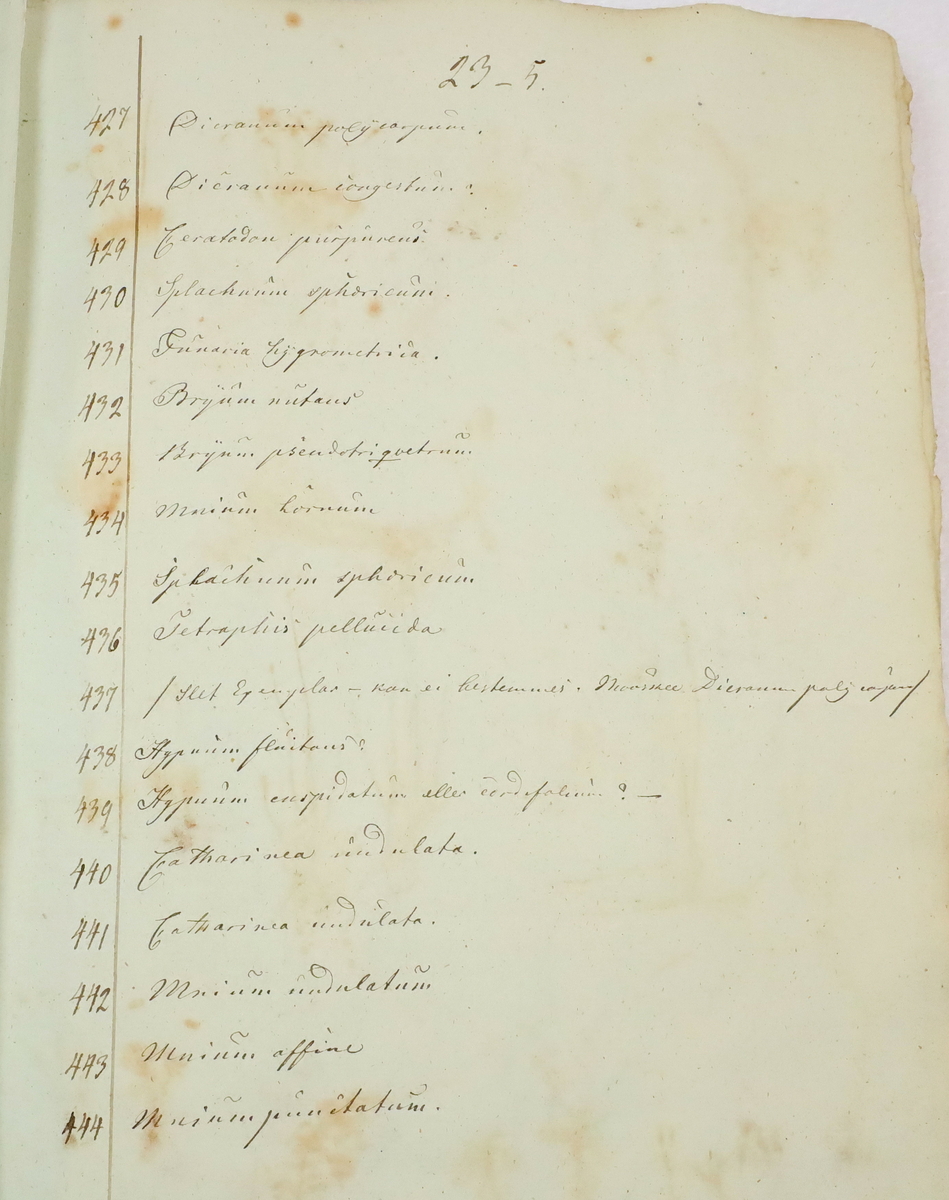 23-5.
427 Dicranum polycarpum.
428 Dicranum congestum?
429 Ceratodon purpureus.
430 Splachnum sphæricum.
431 Funaria hygrometrica.
432 Bryum nutans
433 Bryum pseudotriquetrum
434 Mnium hornum
435 Splachnum sphæricum
436 Tetraphis pellucida
437 / Slet Exemplar - kan ei bestemmes. Dicranum polycarpum /
438 Hypnum fluitans?
439 Hypnum cuspidatum eller cordifolium? —
440 Catharinea undulata.
441 Catharinea undulata.
442 Mnium undulatum
443 Mnium affine
444 Mnium punctatum.